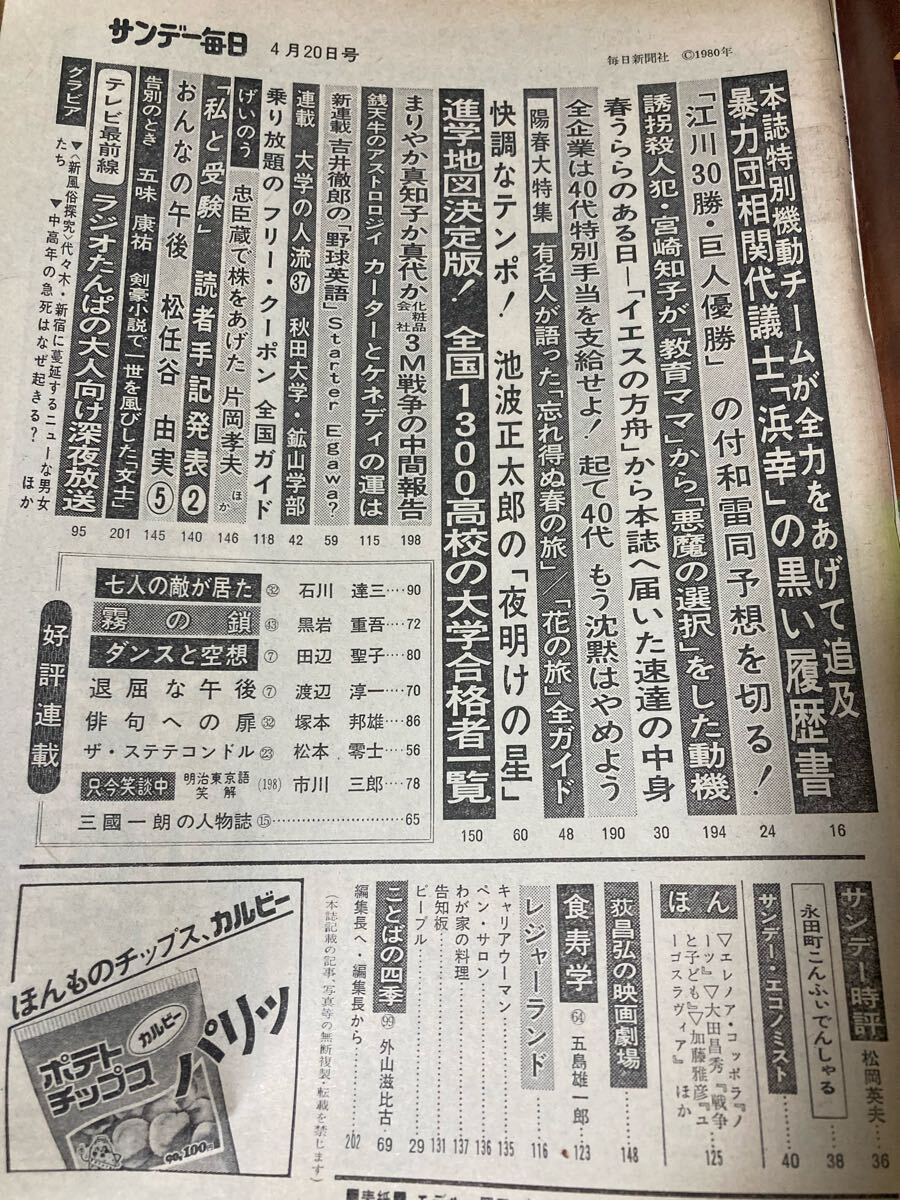 サンデー毎日
4月20日号
毎日新聞社 ©1980年
本誌特別機動チームが全力をあげて追及
暴力団相関代議士「浜幸」の黒い履歴書
16
「江川30勝・巨人優勝」の付和雷同予想を切る!
24
誘拐殺人犯・宮崎知子が「教育ママ」から「悪魔の選択」をした動機
194
春うららのある日―「イエスの方舟」から本誌へ届いた速達の中身
30
全企業は40代特別手当を支給せよ! 起て40代 もう沈黙はやめよう
190
陽春大特集 有名人が語った「忘れ得ぬ春の旅」/「花の旅」全ガイド
48
快調なテンポ! 池波正太郎の「夜明けの星」
60
進学地図決定版! 全国1300高校の大学合格者一覧
150
まりやか真知子か真代か 化粧品会社 3M戦争の中間報告
198
銭天牛のアストロロジイ カーターとケネディの運は
115
新連載 吉井徹郎の「野球英語」 Starter Egawa?
59
連載 大学の人流㊲ 秋田大学・鉱山学部
42
乗り放題のフリー・クーポン 全国ガイド
118
げいのう 忠臣蔵で株をあげた 片岡孝夫 ほか
146
「私と受験」 読者手記発表②
140
おんなの午後 松任谷 由実⑤
145
告別のとき 五味 康祐 剣豪小説で一世を風びした「文士」
201
テレビ最前線 ラジオたんぱの大人向け深夜放送
95
グラビア
▼〈新風俗探究〉代々木・新宿に蔓延するニューな男女たち
▼中高年の急死はなぜ起きる? ほか
好評連載
七人の敵が居た ㉜ 石川 達三‥‥90
霧の鎖 ㊸ 黒岩 重吾‥‥72
ダンスと空想 ⑦ 田辺 聖子‥‥80
退屈な午後 ⑦ 渡辺 淳一‥‥70
俳句への扉 ㉜ 塚本 邦雄‥‥86
ザ・ステテコンドル ㉓ 松本 零士‥‥56
只今笑談中 明治東京語笑解 (198) 市川 三郎‥‥78
三國一朗の人物誌 ⑮‥‥‥‥65
サンデー時評 松岡英夫‥‥36
永田町こんふぃでんしゃる‥‥38
サンデー・エコノミスト‥‥40
ほん
▽エレノア・コッポラ『ノーツ』▽大田昌秀『戦争と子ども』▽加藤雅彦『ユーゴスラヴィア』ほか
125
荻昌弘の映画劇場‥‥148
食寿学 64 五島雄一郎‥‥123
レジャーランド‥‥116
キャリアウーマン‥‥135
ペン・サロン‥‥136
わが家の料理‥‥137
告知板‥‥131
ピープル‥‥29
ことばの四季 99 外山滋比古‥‥69
編集長へ・編集長から‥‥202
(本誌記載の記事、写真等の無断複製、転載を禁じます)
ほんものチップス、カルビー
パリッ
カルビー
ポテトチップス
90,100円